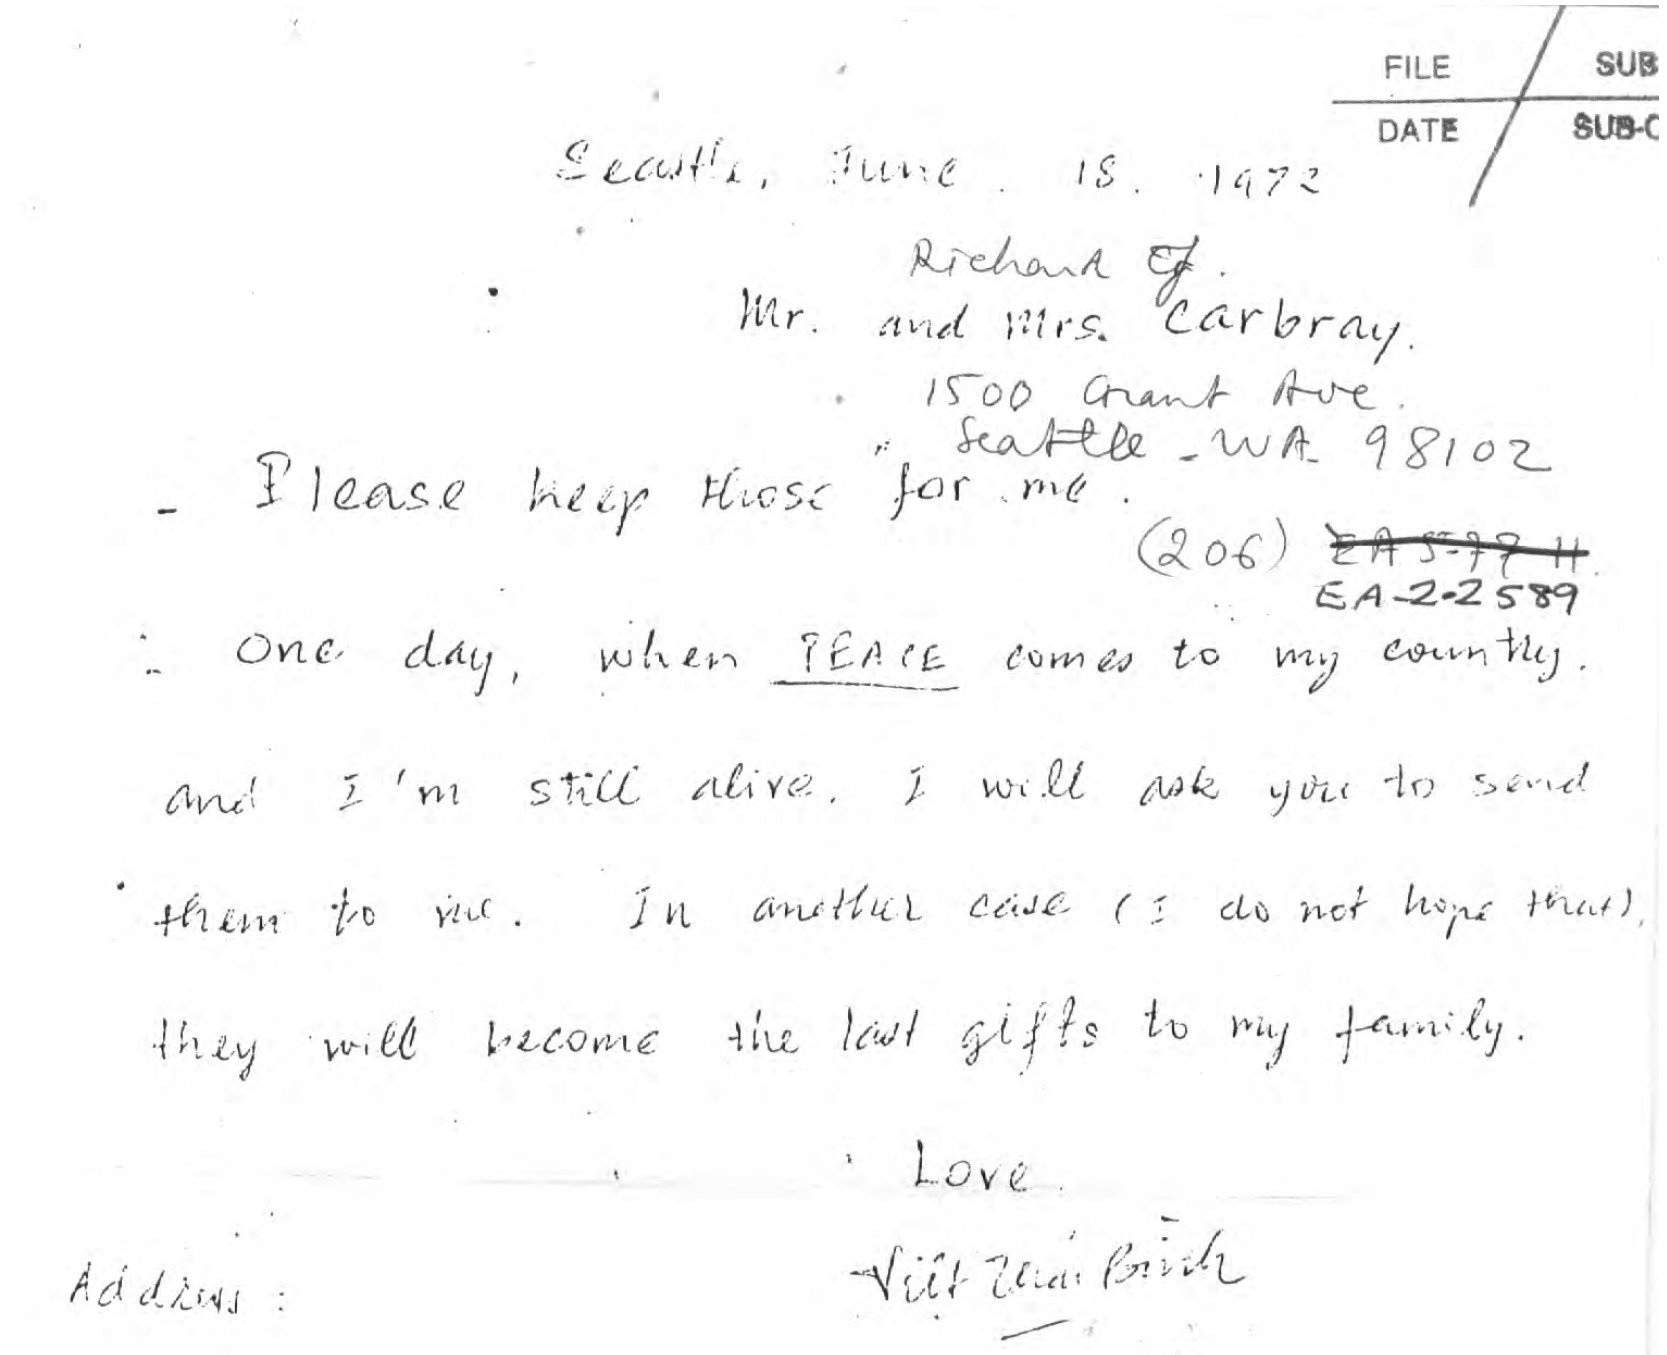 FILE SUB
DATE SUB-C
Seattle, June . 18. 1972
Richard
Mr. and Mrs. Carbray.
1500 Grant Ave.
Seattle - WA 98102
- Please keep those for me.
(206) EA 5-77
EA-2-2589
- One day, when PEACE comes to my country.
and I'm still alive. I will ask you to send
them to me. In another case (I do not hope that),
they will become the last gifts to my family.
Love.
Việt Thái Bình
Address :